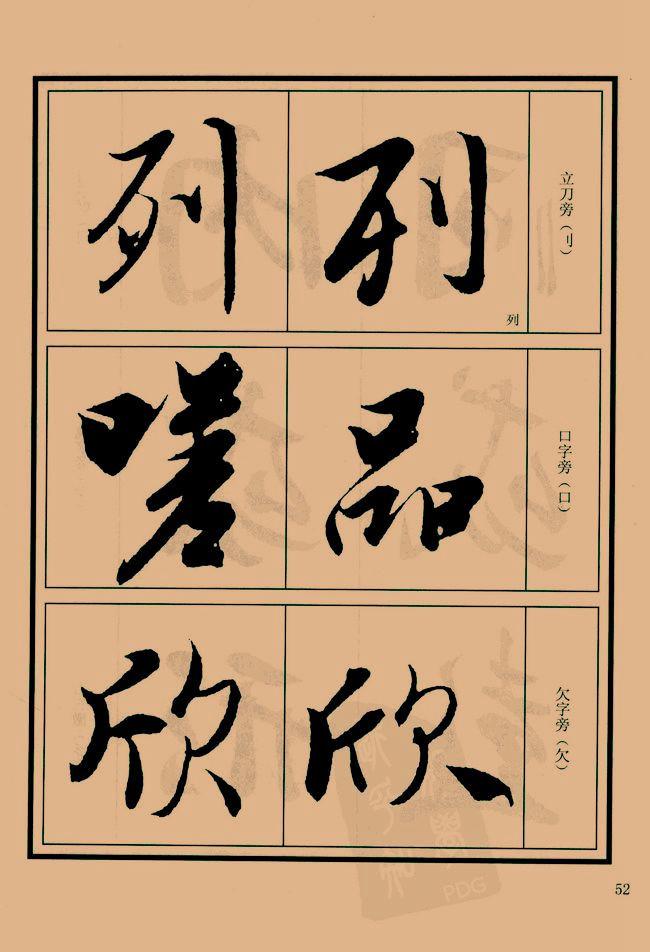 立刀旁（刂）
列
列
列
口字旁（口）
品
嗟
欠字旁（欠）
欣
欣
52
PDG